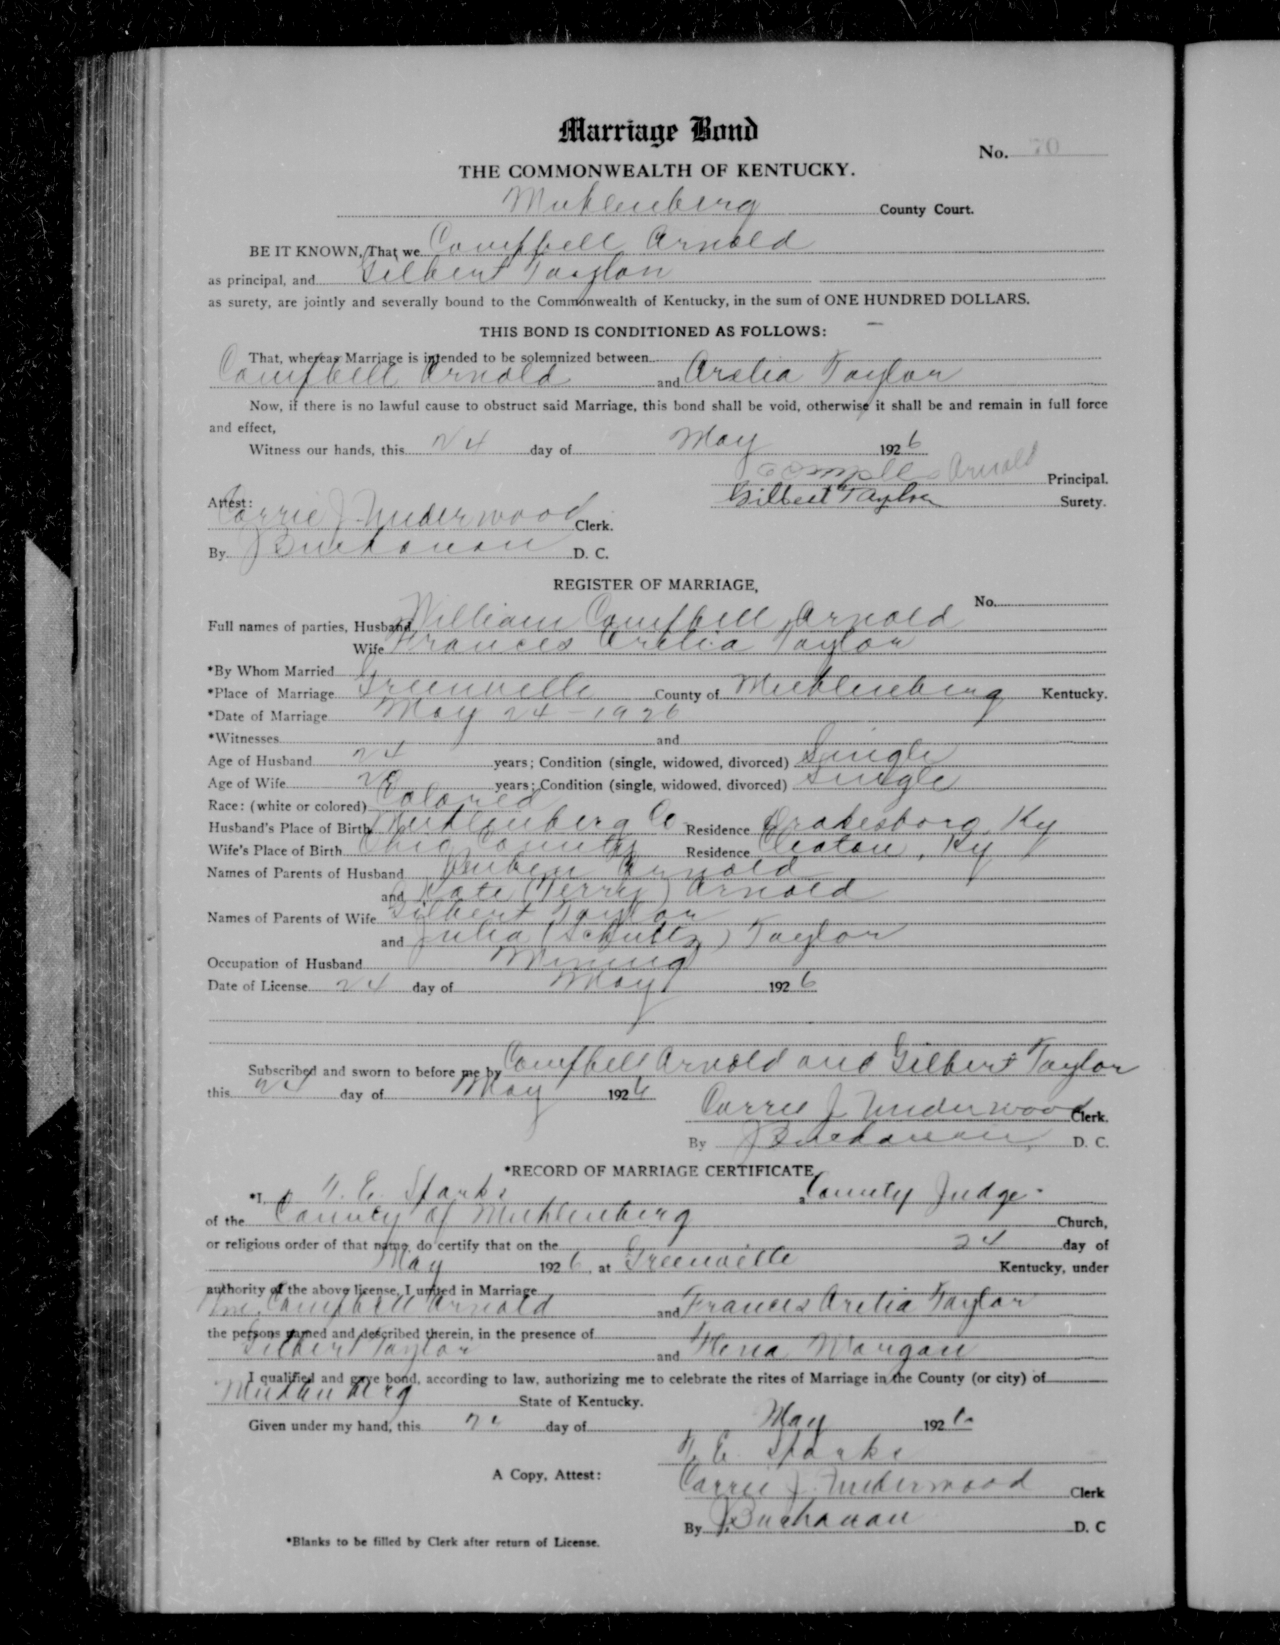 Marriage Bond
No. 70
THE COMMONWEALTH OF KENTUCKY.
Muhlenberg County Court.
BE IT KNOWN, That we Campbell Arnold
as principal, and Gilbert Taylor
as surety, are jointly and severally bound to the Commonwealth of Kentucky, in the sum of ONE HUNDRED DOLLARS.
THIS BOND IS CONDITIONED AS FOLLOWS:
That, whereas Marriage is intended to be solemnized between
Campbell Arnold and Arelia Taylor
Now, if there is no lawful cause to obstruct said Marriage, this bond shall be void, otherwise it shall be and remain in full force
and effect,
Witness our hands, this 24 day of May 1926
Arnold Principal.
Gilbert Taylor Surety.
Attest:
Carrie J. Underwood Clerk.
By J Buchanan D. C.
REGISTER OF MARRIAGE,
No.
Full names of parties, Husband William Campbell Arnold
Wife Frances Arelia Taylor
*By Whom Married
*Place of Marriage Greenville County of Muhlenberg Kentucky.
*Date of Marriage May 24 - 1926
*Witnesses and
Age of Husband 24 years; Condition (single, widowed, divorced) Single
Age of Wife years; Condition (single, widowed, divorced) Single
Race: (white or colored) Colored
Husband's Place of Birth Muhlenberg Co Residence Drakesboro, Ky
Wife's Place of Birth Ohio County Residence Cleaton, Ky
Names of Parents of Husband Ruben Arnold
and Kate (Terry) Arnold
Names of Parents of Wife Gilbert Taylor
and Julia (Schultz) Taylor
Occupation of Husband Mining
Date of License 24 day of May 1926
Subscribed and sworn to before me by Campbell Arnold and Gilbert Taylor
this 24 day of May 1926
Carrie J Underwood Clerk.
By J Buchanan D. C.
*RECORD OF MARRIAGE CERTIFICATE,
*I, Sparks, County Judge
of the County of Muhlenberg Church,
or religious order of that name, do certify that on the 24 day of
May 1926, at Greenville Kentucky, under
authority of the above license, I united in Marriage
Wm. Campbell Arnold and Frances Arelia Taylor
the persons named and described therein, in the presence of
Gilbert Taylor and Morgan
I qualified and gave bond, according to law, authorizing me to celebrate the rites of Marriage in the County (or city) of
Muhlenberg State of Kentucky.
Given under my hand, this day of May 1926
Sparks
A Copy, Attest:
Carrie J. Underwood Clerk
By J. Buchanan D. C
*Blanks to be filled by Clerk after return of License.